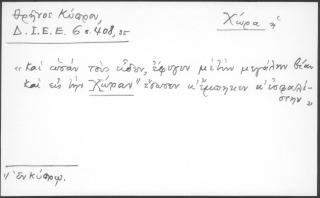 Θρῆνος Κύπρου,
Δ.Ι.Ε.Ε. 6 σ. 408, 25
Χώρα ἡ
«Καὶ ὡσὰν τοὺς εἶδεν, ἔφυγεν μὲ τὴν μεγάλην βίαν
καὶ εἰς τὴν Χώραν¹⁾ ἔσωσεν κ' ἐμπῆκεν κ' ἐσφαλί-
στην»
1) ἐν Κύπρῳ.